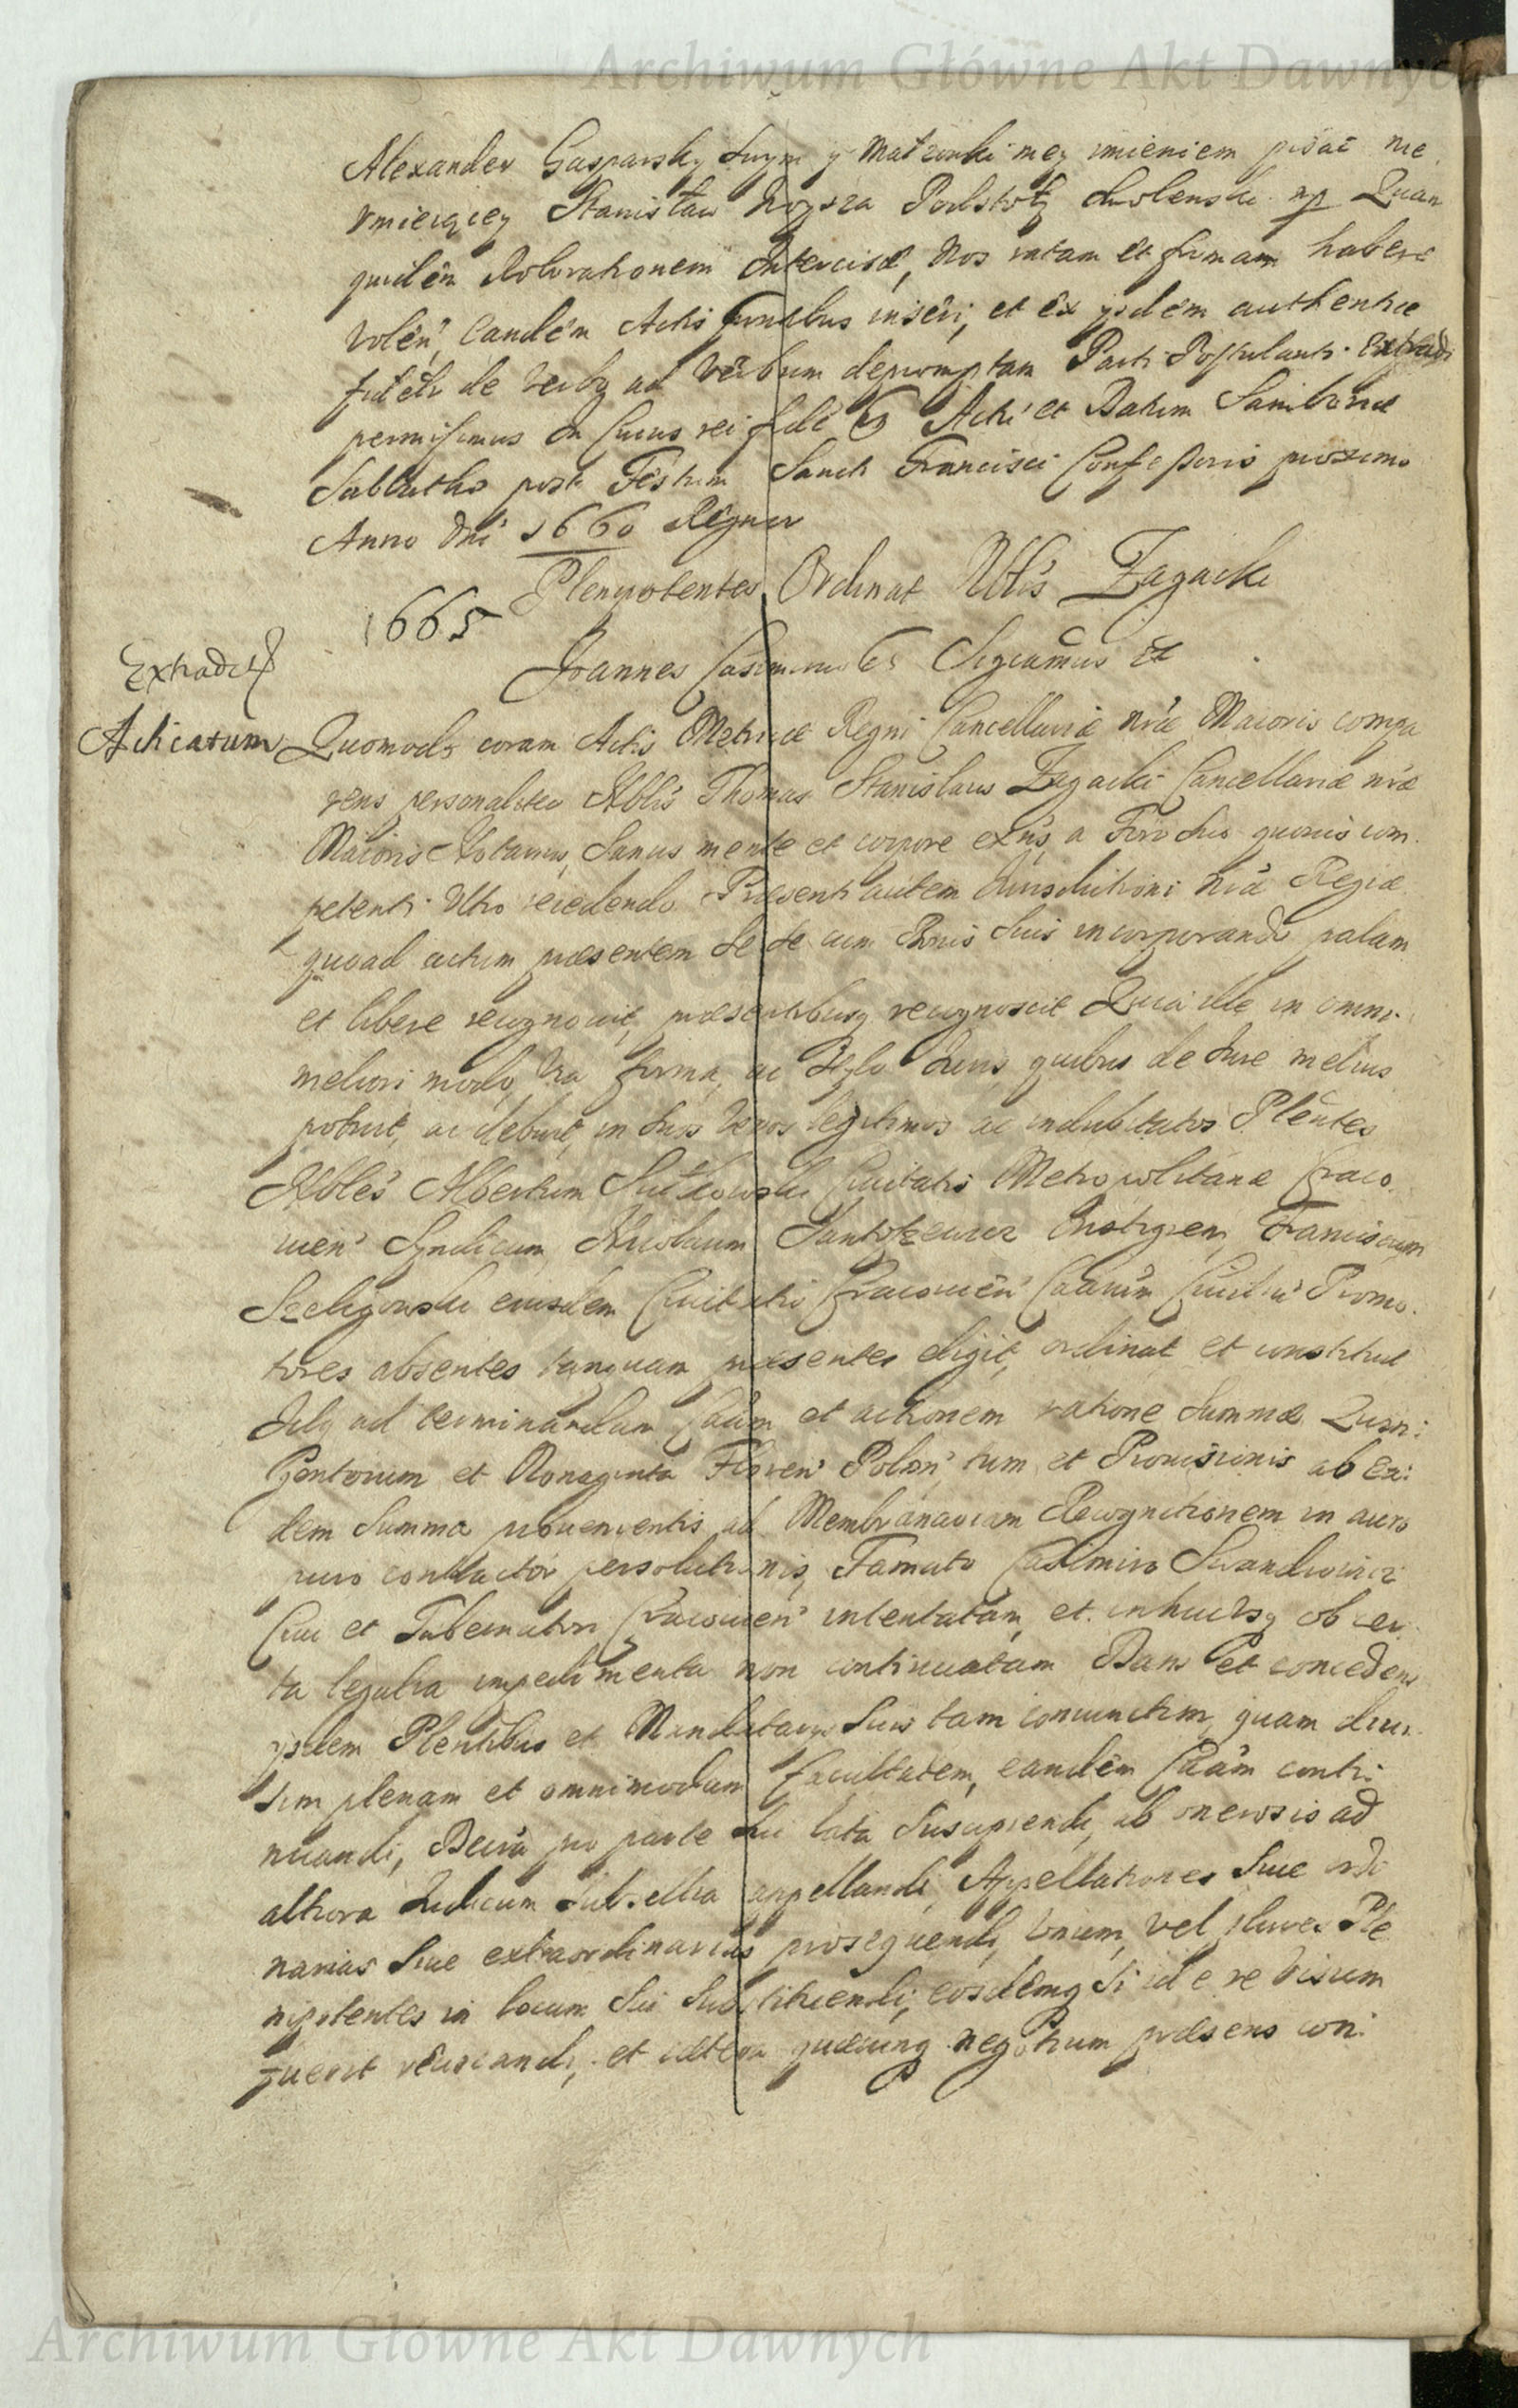 Archiwum Główne Akt Dawnych
Alexander Gasparsky swym y Małzonki mey imieniem pisać nie
vmieiącey Stanisław Podstoly Cholensky mp Quam
quidem Roborationem Intercisæ, Nos ratam et firmam habere
volen, eandem Actis inseri, et ex ysdem authentice
de verbo ad verbum depromptam Parti Postulanti Extradi
permisimus In Cuius rei fide Acti et Datum Samboriæ
Sabbatho post Festum Sancti Francisci Confessoris proximo
Anno Dni 1660 Regnor
Plenipotentes Ordinat Nblis Zagacki
1665
Joannes Casimirus Significamus
Extradet
Acticatum Quomodo coram Actis Metrices Regni Cancellariæ nræ Maioris compa
rens personaliter Nblis Thomas Stanislaus Zagacki Cancellariæ nræ
Maioris Notarius, Sanus mente et corpore exns, a Foro suo quouis com
petenti Vltro recedendo Præsenti autem Jurisdictioni nræ Regiæ
quoad actum præsentem se se cum Bonis suis incorporando palam
et libere recognouit, præsentibusq recognoscit Quia ille in omni
meliori modo, via forma, ac stylo Juris quibus de Jure melius
potuit, ac debuit, in suos veros legitimos ac indubitatos Plentes
Nbles Albertum Ciuitatis Metropolitanæ Craco
uien Syndicum, Nicolaum Franciscum
Szeligowski eiusdem Ciuitatis Cracouien Caarum Ciuiliu Promo
tores absentes tanquam præsentes eligit, ordinat et constituit
Idq ad terminandam Caam et actionem ratione Summæ Quin
gentorum et Nonaginta Floren Polon tum et Prouisionis ab ea
dem Summa prouenientis ad Membranaceam Recognitionem in auro
puro persolutionis, Famato Casimiro
Ciui et Tabernatori Cracouien intentatam, et inhucusq ob cer
ta legalia impedimenta non continuatam Dans et concedens
ysdem Plentibus et Mandatarys suis tam coniunctim, quam diui
sim plenam et omnimodam facultatem, eandem Caam conti
nuandi, Decra pro parte sui lata suscipiendi, ab onerosis ad
altiora Iudicum subsellia appellandi, Appellationes siue ordi
narias siue extraordinarias prosequendi, vnum, vel plures Ple
nipotentes in locum sui substituendi, eosdemq si id e re visum
fuerit reuocandi, et cætera quæcunq negotium præsens con
Archiwum Główne Akt Dawnych